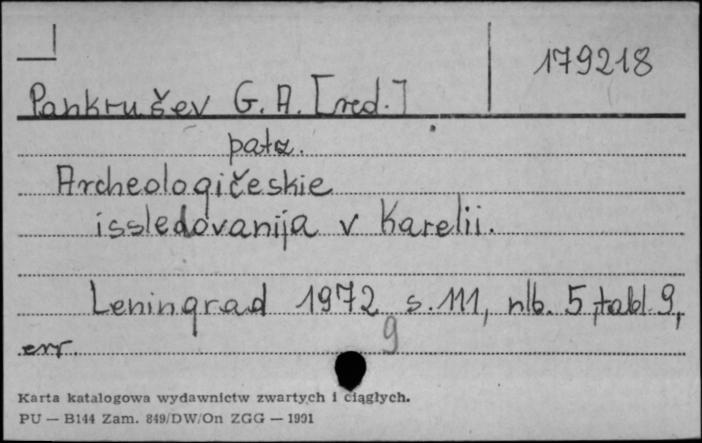 179218
Pankrušev G. A. [red.]
patz.
Archeologičeskie
issledovanija v Karelii.
Leningrad 1972 s. 111, nlb. 5, tabl. 9,
err. 9
Karta katalogowa wydawnictw zwartych i ciągłych.
PU — B144 Zam. 849/DW/On ZGG — 1991